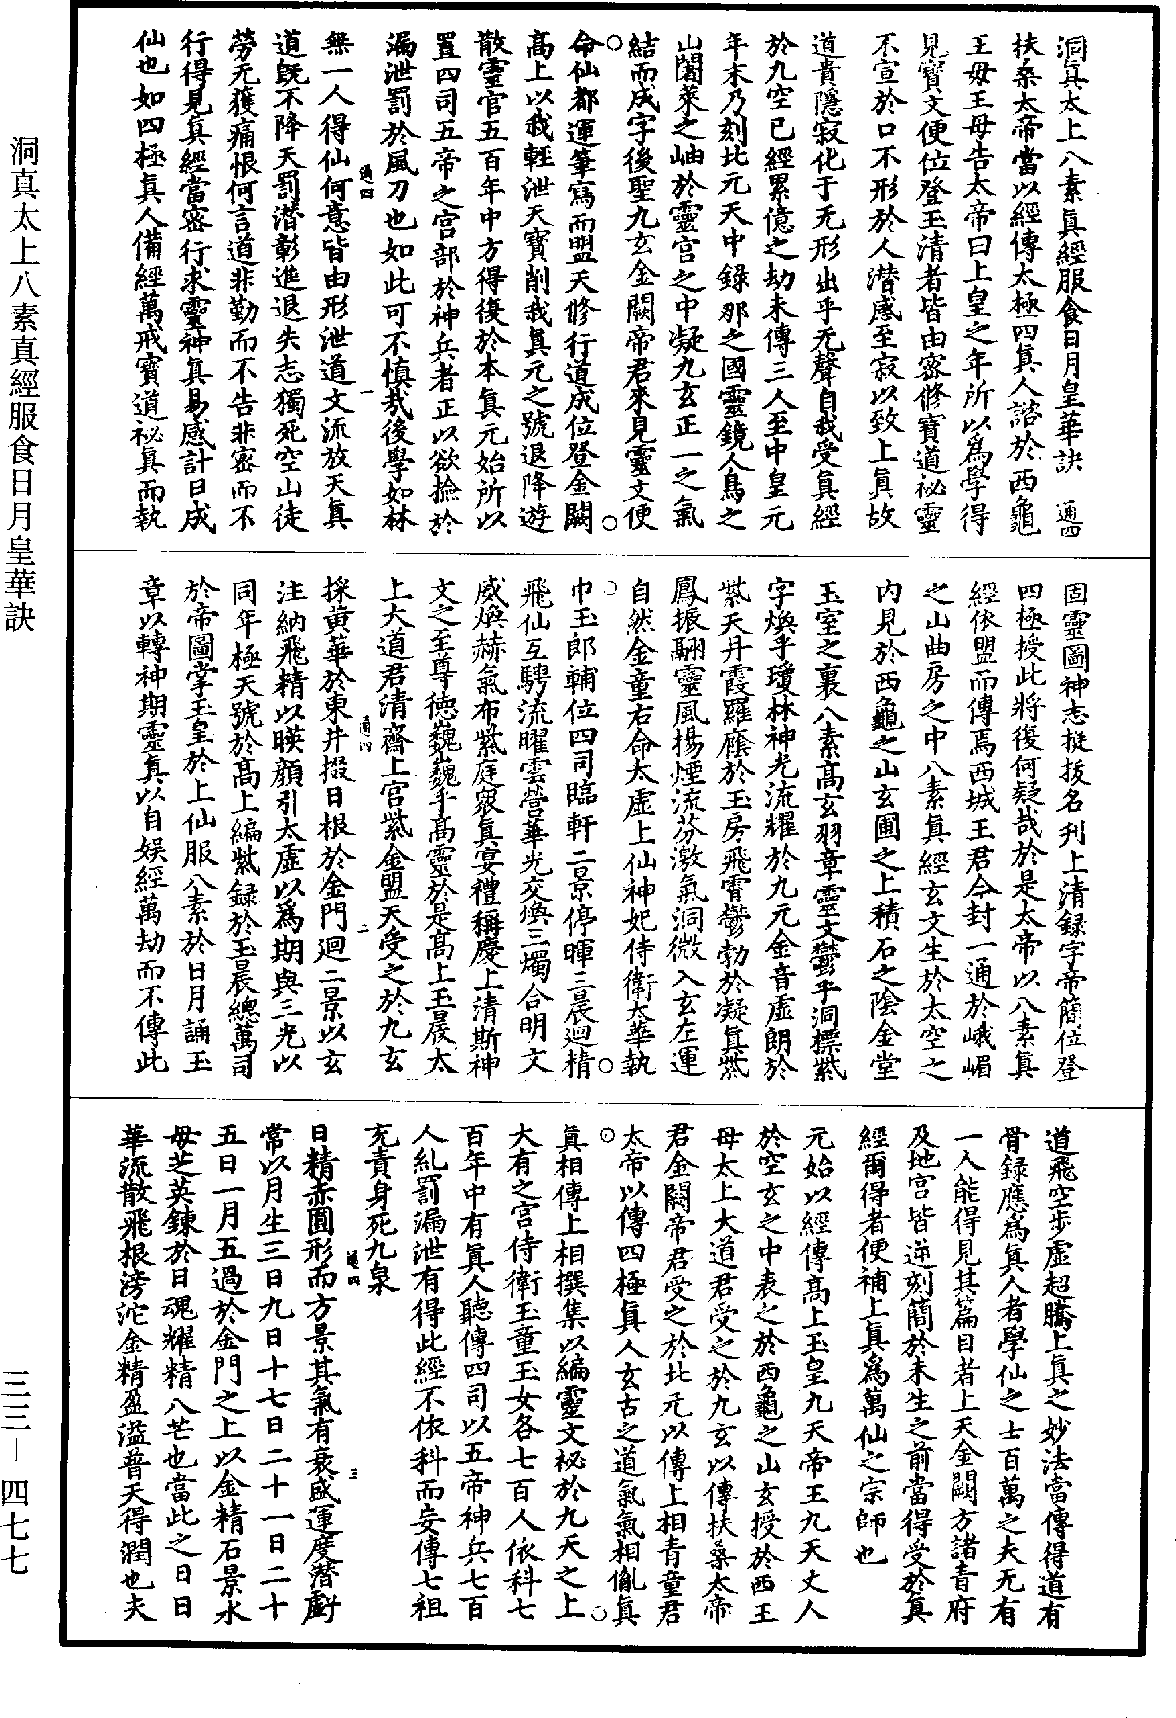 洞真太上八素真經服食日月皇華訣
三三—四七七
洞真太上八素真經服食日月皇華訣　通四
扶桑太帝當以經傳太極四真人諮於西龜
王母王母告太帝曰上皇之年所以為學得
見寶文便位登玉清者皆由密修寶道祕靈
不宣於口不形於人潛感至寂以致上真故
道貴隱寂化于无形出乎无聲自我受真經
於九空已經累億之劫未傳三人至中皇元
年末乃刻北元天中錄那之國靈鏡人鳥之
山閬萊之岫於靈宮之中凝九玄正一之氣
結而成字後聖九玄金闕帝君來見靈文便
命仙都運筆寫而盟天修行道成位登金闕
高上以我輕泄天寶削我真元之號退降遊
散靈官五百年中方得復於本真元始所以
置四司五帝之宮部於神兵者正以欲撿於
漏泄罰於風刀也如此可不慎哉後學如林
通四　一
無一人得仙何意皆由形泄道文流放天真
道既不降天罰潛彰進退失志獨死空山徒
勞无獲痛恨何言道非勤而不告非密而不
行得見真經當密行求靈神真易感計日成
仙也如四極真人備經萬戒寶道祕真而執
固靈圖神志挺拔名刋上清錄字帝簡位登
四極授此將復何疑哉於是太帝以八素真
經依盟而傳焉西城王君今封一通於峨嵋
之山曲房之中八素真經玄文生於太空之
內見於西龜之山玄圃之上積石之陰金堂
玉室之裏八素高玄羽章靈文鬱乎洞標紫
字煥乎瓊林神光流耀於九元金音虛朗於
紫天丹霞羅廕於玉房飛霄鬱勃於凝真紫
鳳振翮靈風揚煙流芬激氣洞微入玄左運
自然金童右命太虛上仙神妃侍衛太華執
巾玉郎輔位四司臨軒二景停暉三晨迴精
飛仙互騁流曜雲營華光交煥三燭合明文
威煥赫氣布紫庭衆真宴禮稱慶上清斯神
文之至尊德巍巍乎高靈於是高上玉晨太
上大道君清齋上宮紫金盟天受之於九玄
通四　二
採黃華於東井掇日根於金門迴二景以玄
注納飛精以暎顏引太虛以為期與三光以
同年極天號於高上編紫錄於玉晨總萬司
於帝圖掌玉皇於上仙服八素於日月誦玉
章以轉神期靈真以自娛經萬劫而不傳此
道飛空步虛超騰上真之妙法當傳得道有
骨錄應為真人者學仙之士百萬之夫无有
一人能得見其篇目者上天金闕方諸青府
及地宮皆逆刻簡於未生之前當得受於真
經爾得者便補上真為萬仙之宗師也
元始以經傳高上玉皇九天帝王九天丈人
於空玄之中表之於西龜之山玄授於西王
母太上大道君受之於九玄以傳扶桑太帝
君金闕帝君受之於北元以傳上相青童君
太帝以傳四極真人玄古之道氣氣相胤真
真相傳上相撰集以編靈文祕於九天之上
大有之宮侍衛玉童玉女各七百人依科七
百年中有真人聽傳四司以五帝神兵七百
人糺罰漏泄有得此經不依科而妄傳七祖
充責身死九泉
通四　三
日精赤圓形而方景其氣有衰盛運度潛虧
常以月生三日九日十七日二十一日二十
五日一月五過於金門之上以金精石景水
母芝英鍊於日魂耀精八芒也當此之日日
華流散飛根滂沱金精盈溢普天得潤也夫